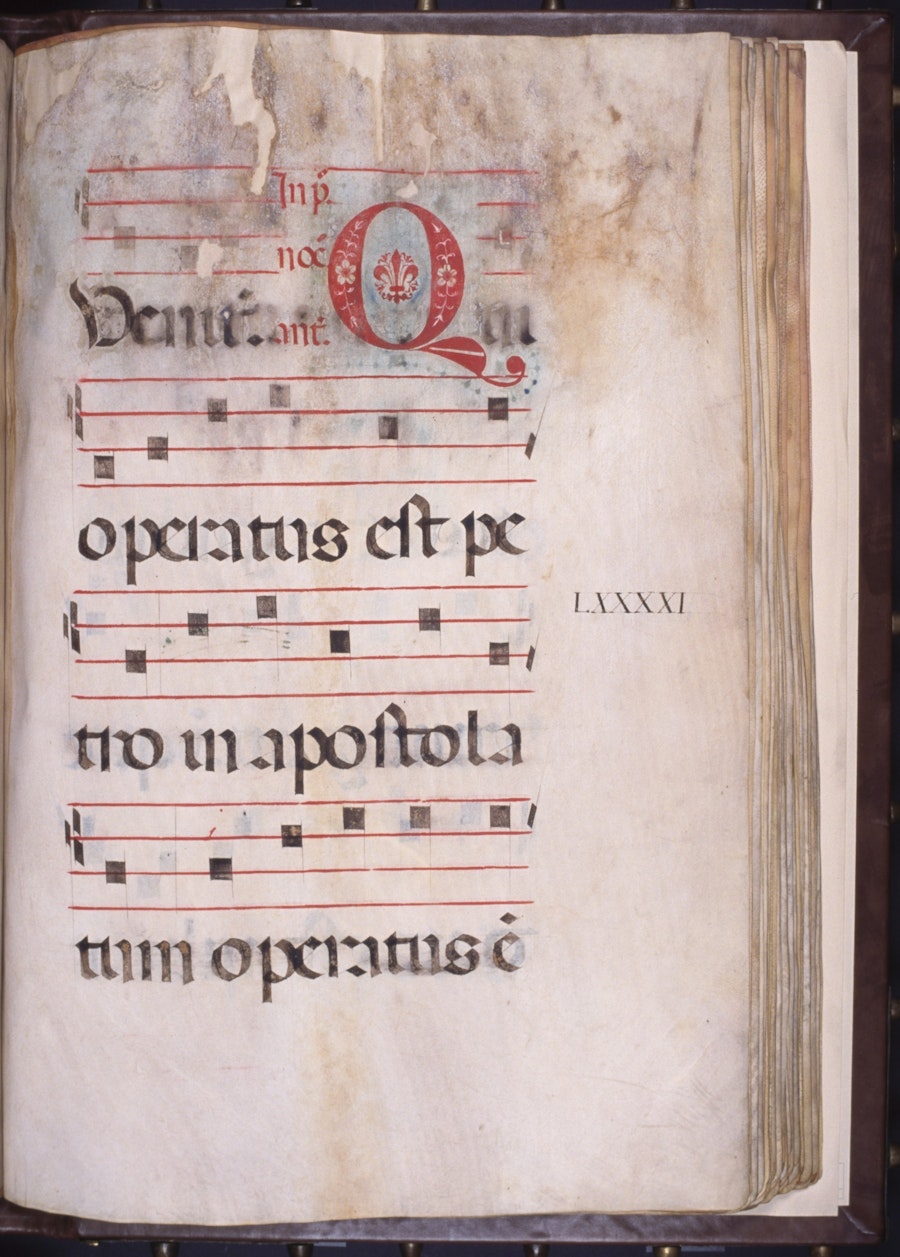 In p̄.
noc̄
Venite. ant̄. Qui
operatus est pe
LXXXXI
tro in apostola
tum operatus ē